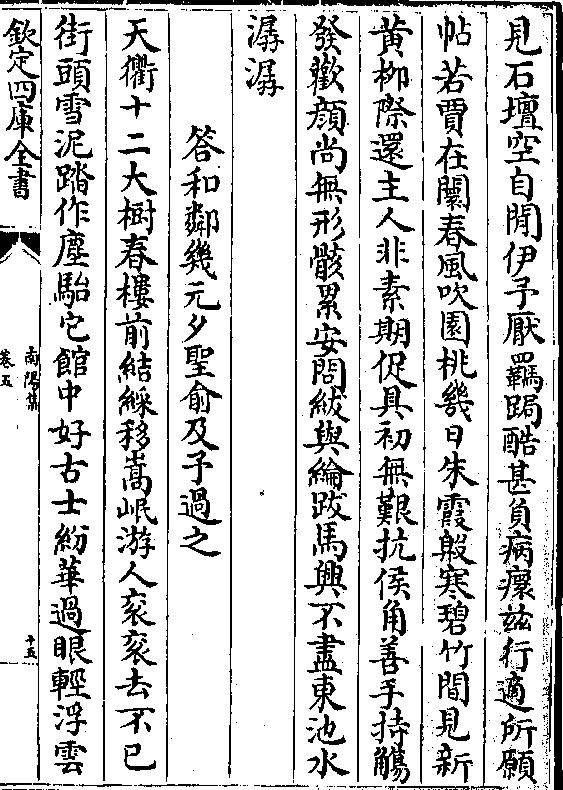 見石壇空自閒伊予厭羈跼酷甚負病瘝兹行適所願
帖若賈在闤春風吹園桃幾日朱霞般寒碧竹間見新
黄栁際還主人非素期促具初無艱抗侯角善手持觴
發歡顔尚無形骸累安問紱與綸跋馬興不盡東池水
潺潺
答和鄰幾元夕聖俞及予過之
天衢十二大樹春樓前結綵移嵩岷游人衮衮去不已
街頭雪泥踏作塵駘它館中好古士紛華過眼輕浮雲
欽定四庫全書
南陽集
卷五
十五